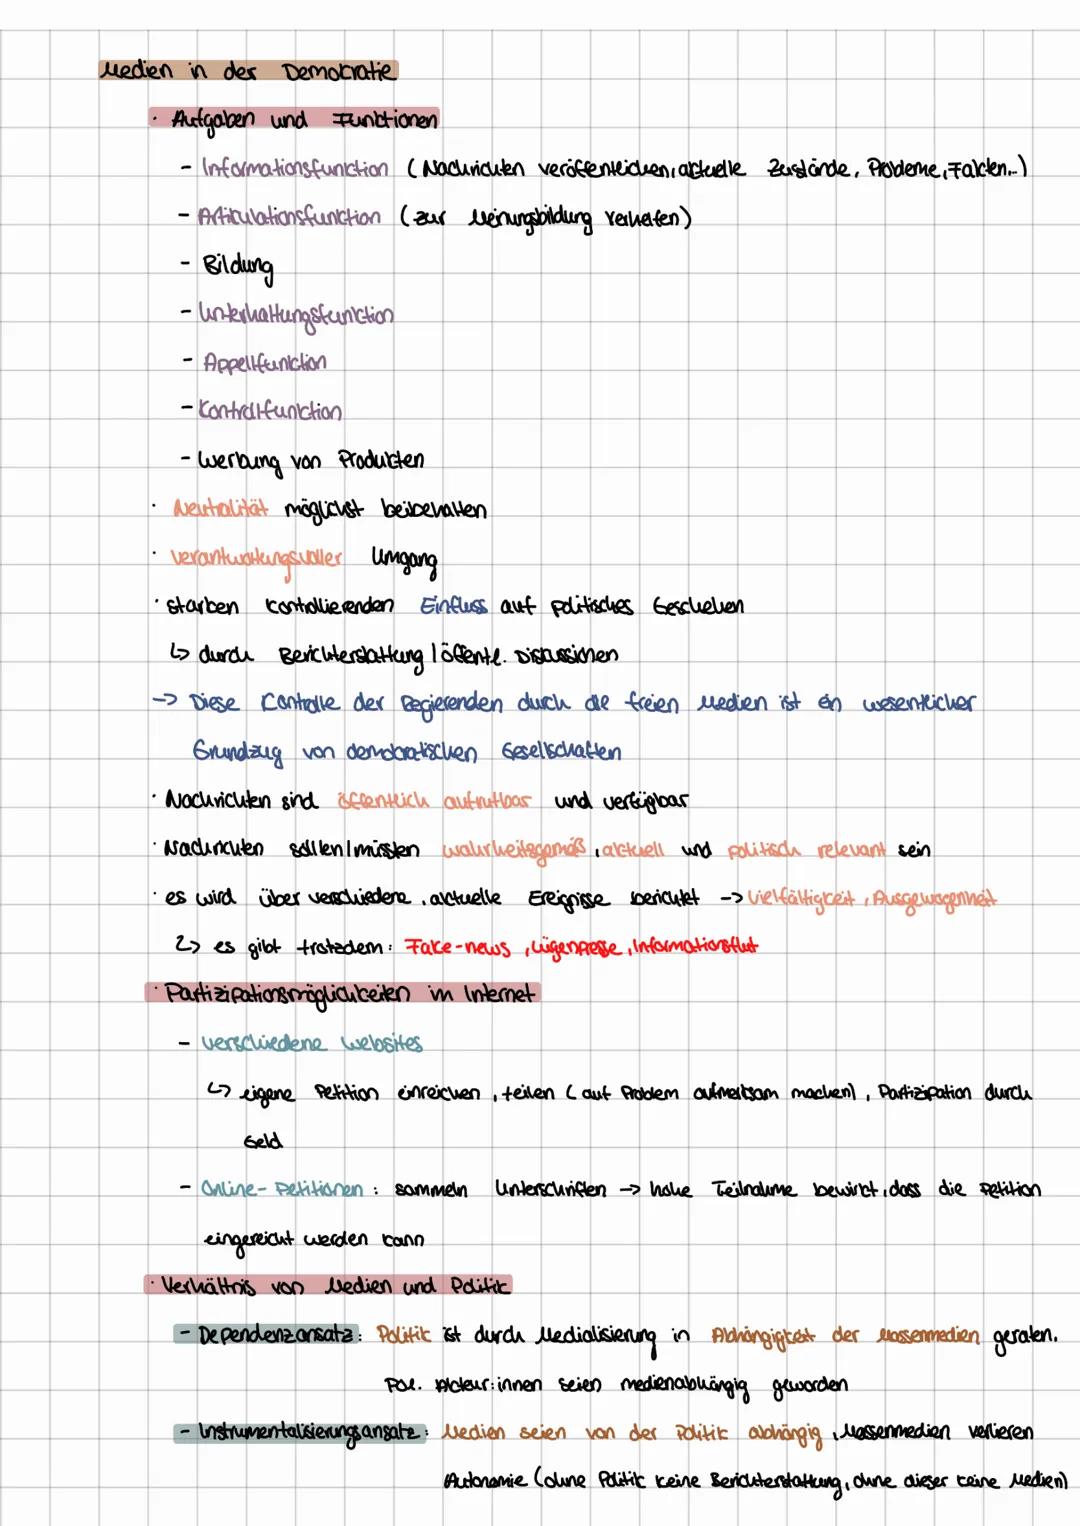 Medien in der Demokratie
· Aufgaben und Funktionen
- Informationsfunktion (Nachrichten veröffentlichen, aktuelle Zustände, Probleme, Fakten...)
- Artikulationsfunktion (zur Meinungsbildung verhelfen)
- Bildung
- Unterhaltungsfunktion
- Appellfunktion
- Kontrollfunktion
- Werbung von Produkten
· Neutralität möglichst beibehalten
· verantwortungsvoller Umgang
· starken kontrollierenden Einfluss auf politisches Geschehen
↳ durch Berichterstattung / öffentl. Diskussionen
-> Diese Kontrolle der Regierenden durch die freien Medien ist ein wesentlicher
Grundzug von demokratischen Gesellschaften
· Nachrichten sind öffentlich aufrufbar und verfügbar
· Nachrichten sollen/müssten wahrheitsgemäß, aktuell und politisch relevant sein
· es wird über verschiedene, aktuelle Ereignisse berichtet -> Vielfältigkeit, Ausgewogenheit
↳ es gibt trotzdem: Fake-news, Lügenpresse, Informationsflut
· Partizipationsmöglichkeiten im Internet
- verschiedene Websites
↳ eigene Petition einreichen, teilen (auf Problem aufmerksam machen), Partizipation durch
Geld
- Online-Petitionen: sammeln Unterschriften -> hohe Teilnahme bewirkt, dass die Petition
eingereicht werden kann
· Verhältnis von Medien und Politik
- Dependenzansatz: Politik ist durch Medialisierung in Abhängigkeit der Massenmedien geraten.
Pol. Akteur:innen seien medienabhängig geworden
- Instrumentalisierungsansatz: Medien seien von der Politik abhängig, Massenmedien verlieren
Autonomie (ohne Politik keine Berichterstattung, ohne dieser keine Medien)